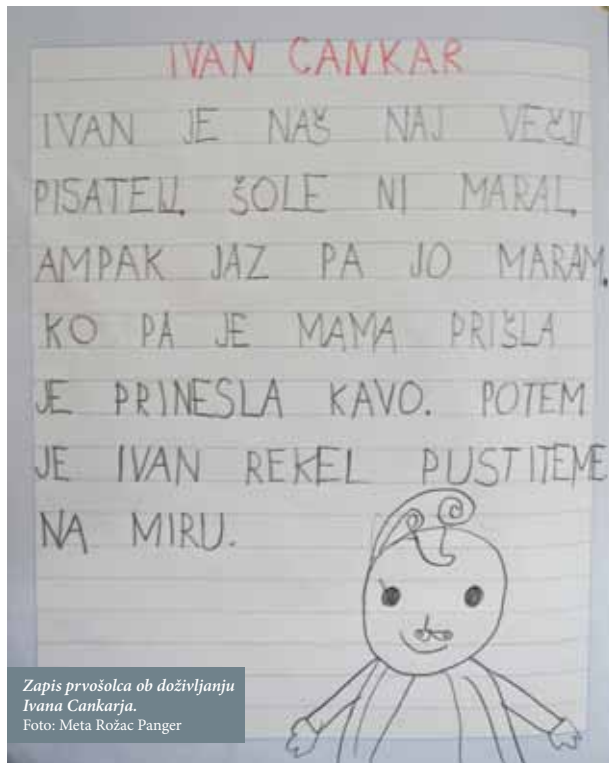 IVAN CANKAR
IVAN JE NAŠ NAJ VEČJI
PISATELJ. ŠOLE NI MARAL.
AMPAK JAZ PA JO MARAM.
KO PA JE MAMA PRIŠLA
JE PRINESLA KAVO. POTEM
JE IVAN REKEL PUSTITEME
NA MIRU.
Zapis prvošolca ob doživljanju
Ivana Cankarja.
Foto: Meta Rožac Panger